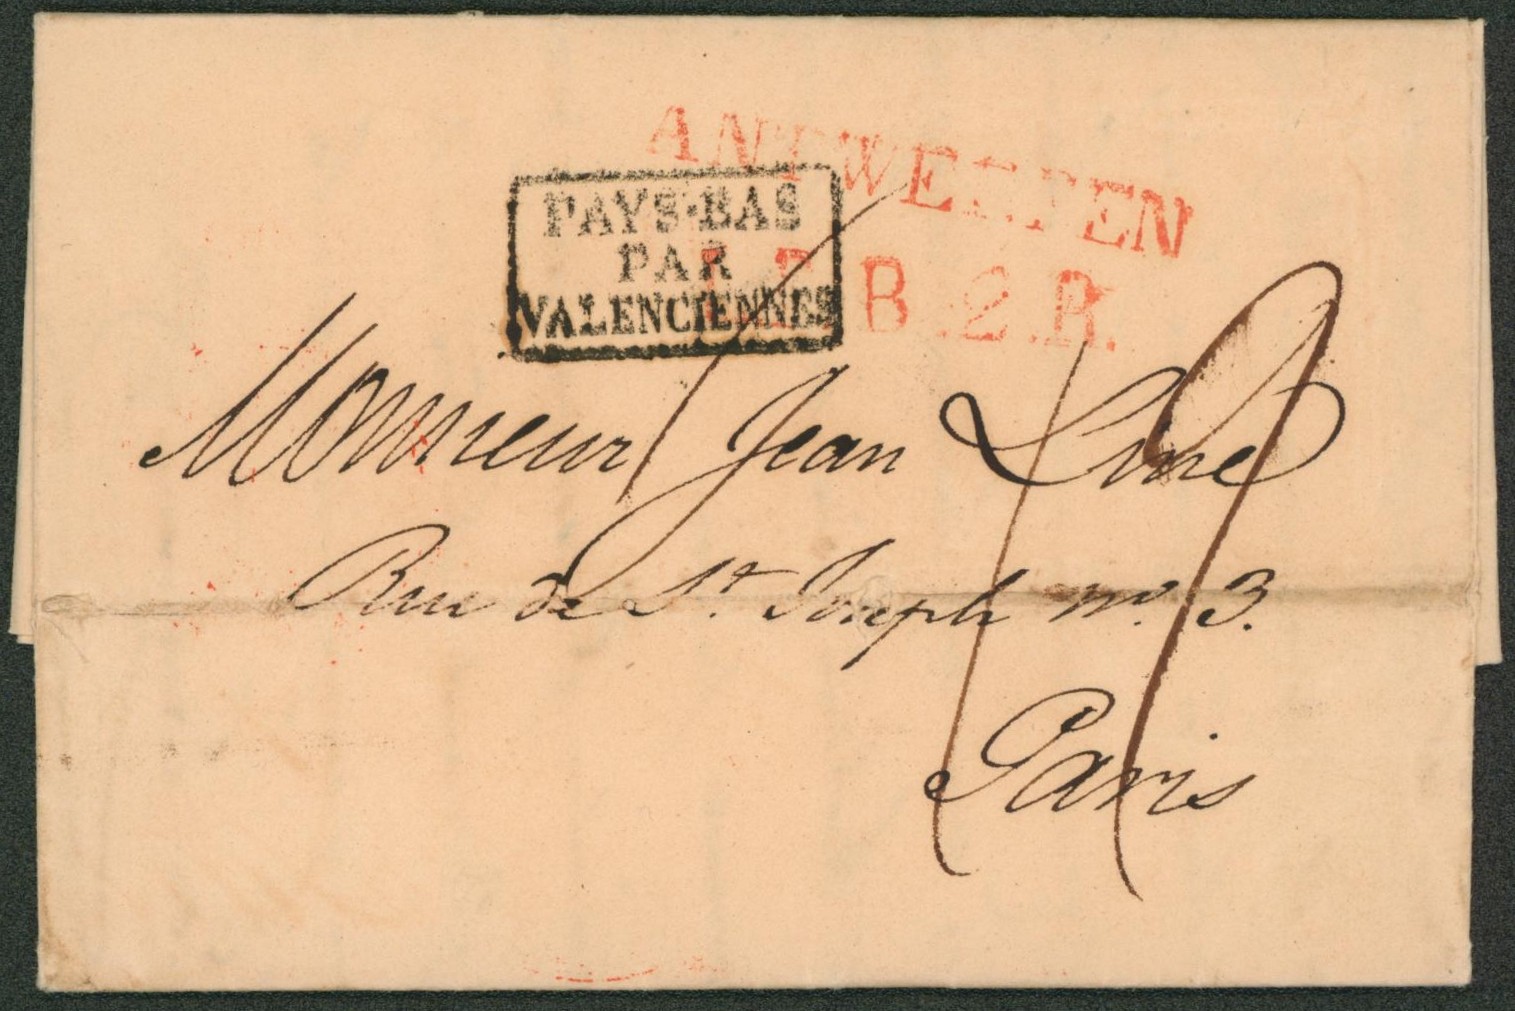 ANTWERPEN
PAYS-BAS
PAR
VALENCIENNES
B.2.R.
Monsieur Jean
Rue de St. Joseph no. 3.
Paris